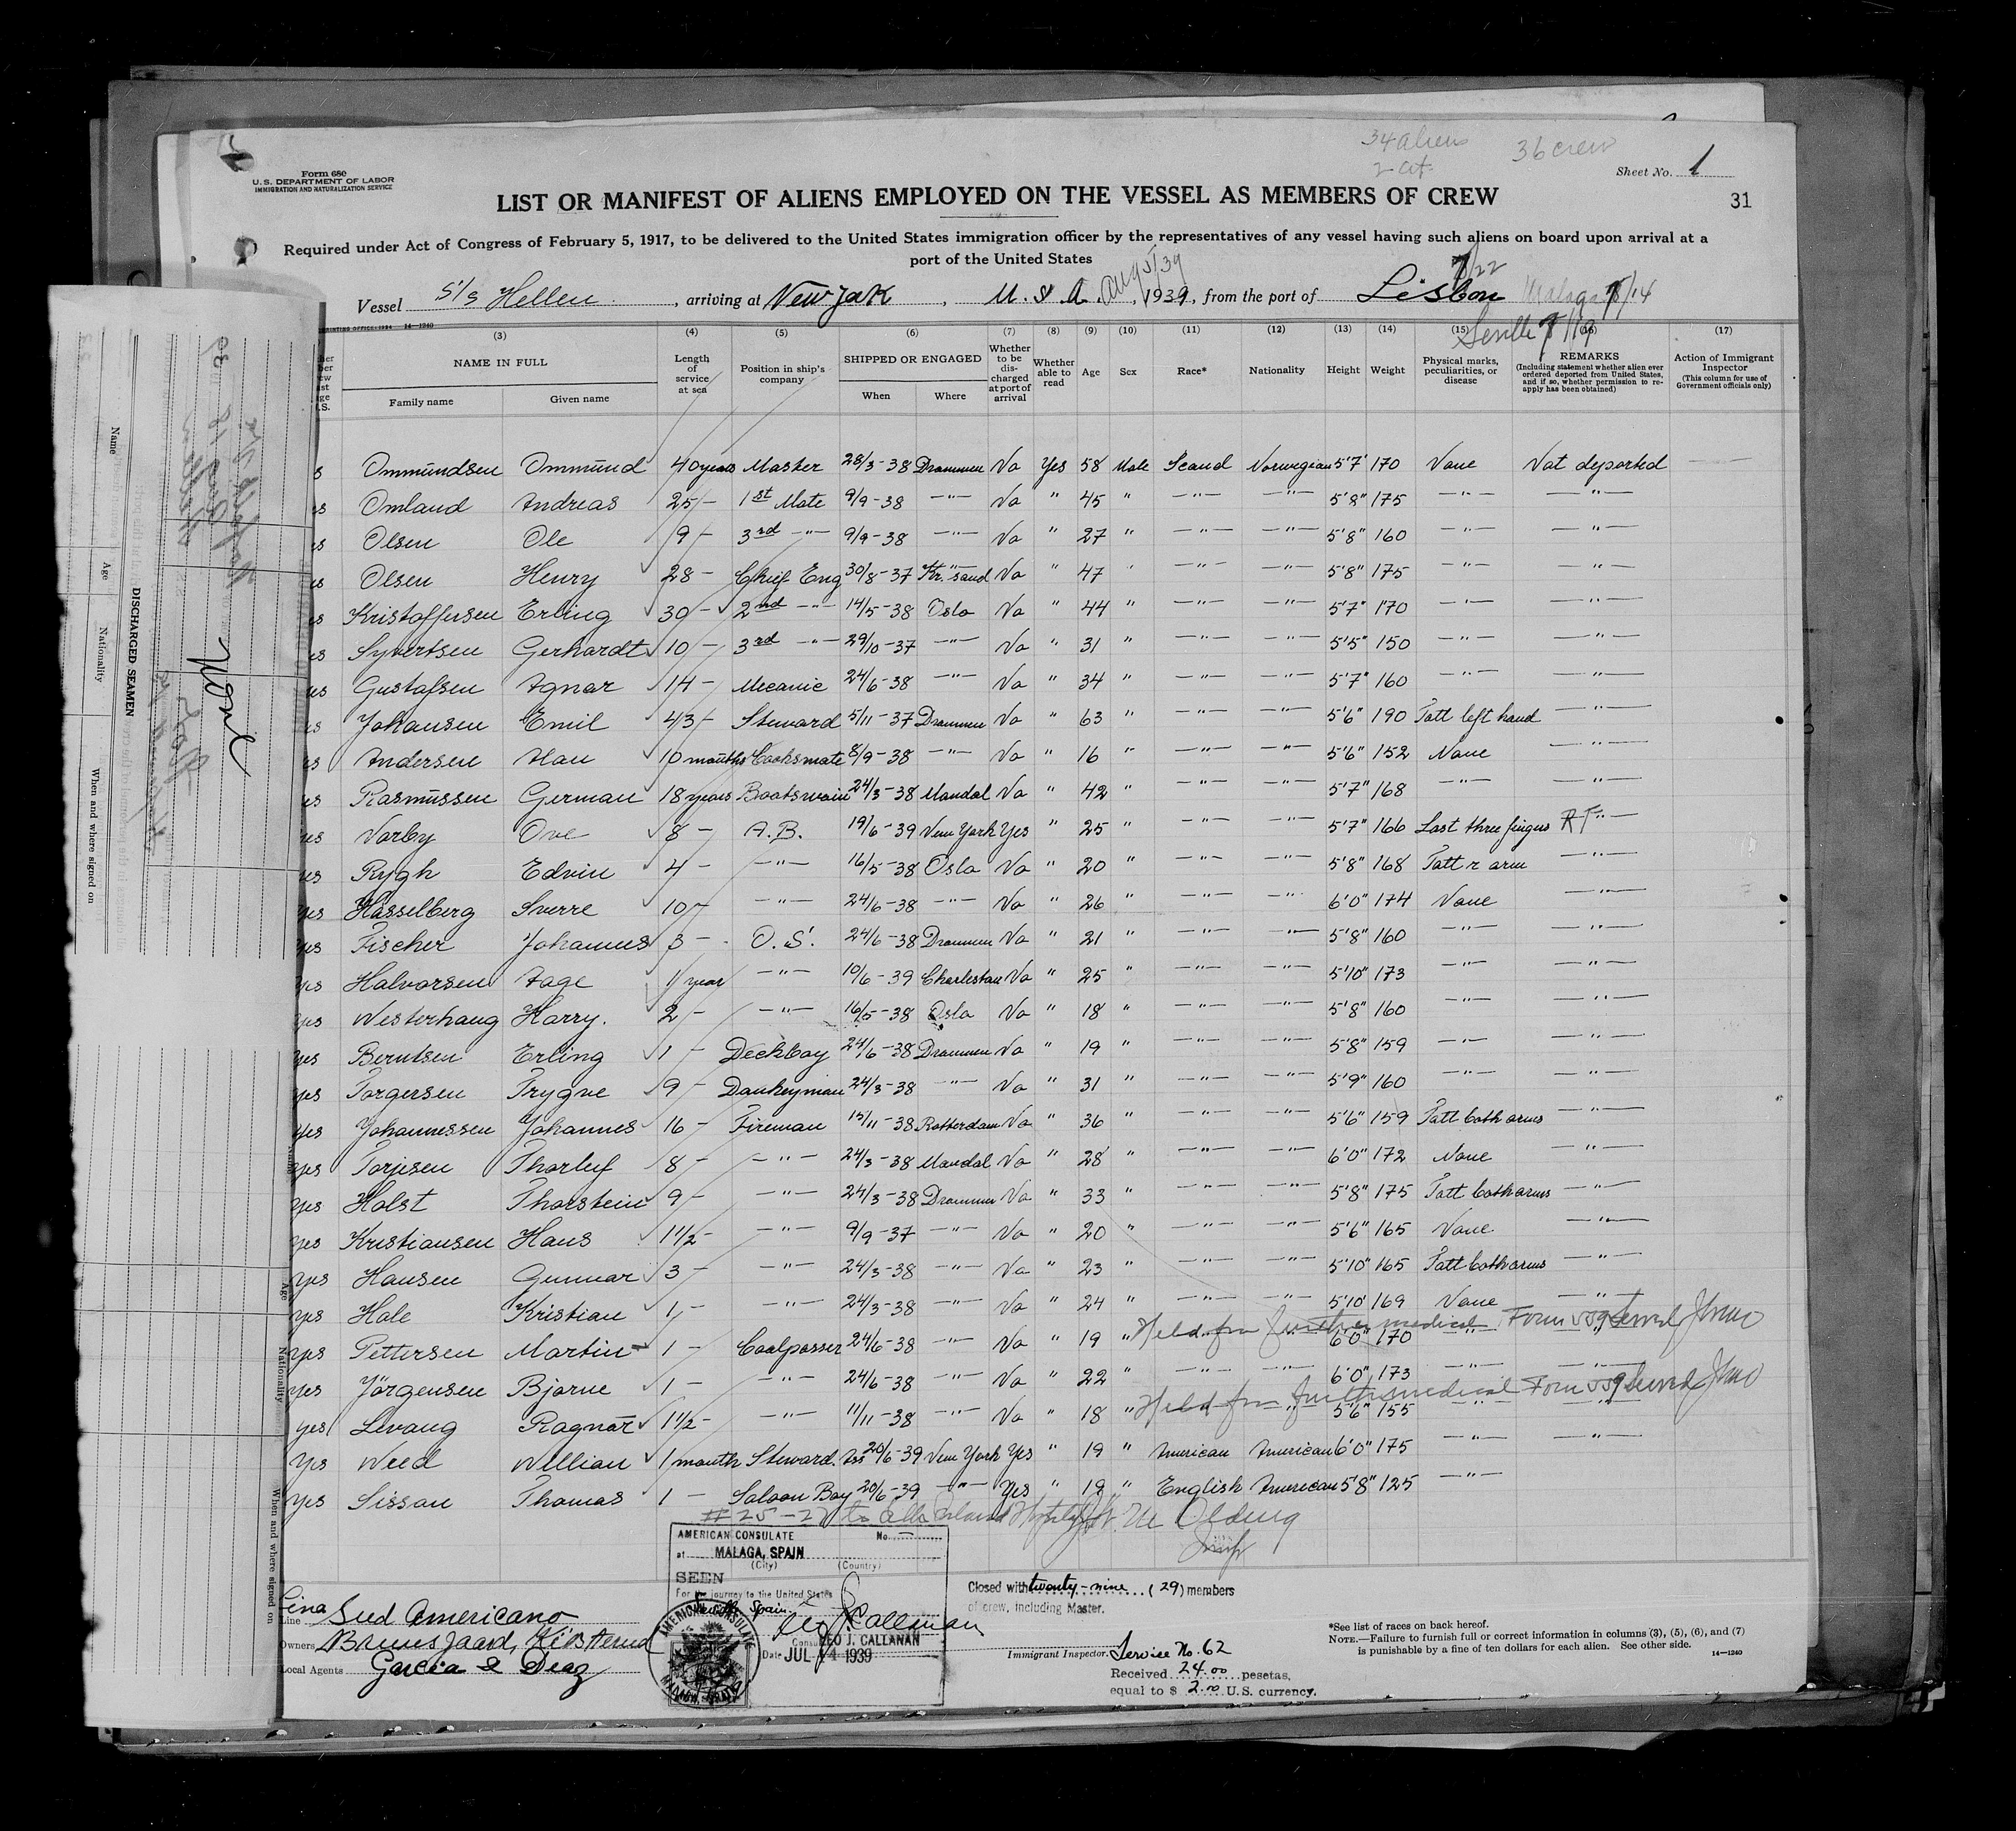 34 aliens
2 cit.
36 crew
Form 680
U.S. DEPARTMENT OF LABOR
IMMIGRATION AND NATURALIZATION SERVICE
Sheet No. 1
LIST OR MANIFEST OF ALIENS EMPLOYED ON THE VESSEL AS MEMBERS OF CREW
31
Required under Act of Congress of February 5, 1917, to be delivered to the United States immigration officer by the representatives of any vessel having such aliens on board upon arrival at a
port of the United States
Aug 5/39
7/22
Vessel S/S Hellen, arriving at New York, U.S.A., 1939, from the port of Lisbon Malaga 7/14
Seville 7/19
14—1240
(3) (4) (5) (6) (7) (8) (9) (10) (11) (12) (13) (14) (15) (16) (17)
NAME IN FULL
Family name Given name
Length of service at sea
Position in ship's company
SHIPPED OR ENGAGED
When Where
Whether to be discharged at port of arrival
Whether able to read
Age
Sex
Race*
Nationality
Height
Weight
Physical marks, peculiarities, or disease
REMARKS
(Including statement whether alien ever ordered deported from United States, and if so, whether permission to reapply has been obtained)
Action of Immigrant Inspector
(This column for use of Government officials only)
Ommundsen Ommund 40 years Master 28/3-38 Drammen No Yes 58 Male Scand Norwegian 5'7" 170 None Not deported
Omland Andreas 25 - 1st Mate 9/9-38 -"- No " 45 " -"- -"- 5'8" 175 -"- -"-
Olsen Ole 9 - 3rd -"- 9/9-38 -"- No " 27 " -"- -"- 5'8" 160 -"- -"-
Olsen Henry 28 - Chief Eng 30/8-37 Kr.sand No " 47 " -"- -"- 5'8" 175 -"- -"-
Kristoffersen Erling 30 - 2nd -"- 14/5-38 Oslo No " 44 " -"- -"- 5'7" 170 -"- -"-
Syvertsen Gerhardt 10 - 3rd -"- 29/10-37 -"- No " 31 " -"- -"- 5'5" 150 -"- -"-
Gustafsen Agnar 14 - Mecanic 24/6-38 -"- No " 34 " -"- -"- 5'7" 160 -"- -"-
Johansen Emil 43 - Steward 5/11-37 Drammen No " 63 " -"- -"- 5'6" 190 Tatt left hand -"-
Andersen Alan 10 months Cooksmate 8/9-38 -"- No " 16 " -"- -"- 5'6" 152 None -"-
Rasmussen German 18 years Boatswain 24/3-38 Mandal No " 42 " -"- -"- 5'7" 168 -"- -"-
Norby Ove 8 - A.B. 19/6-39 New York Yes " 25 " -"- -"- 5'7" 166 Last three fingers RF -"-
Rygh Edvin 4 - -"- 16/5-38 Oslo No " 20 " -"- -"- 5'8" 168 Tatt r arm -"-
yes Hasselberg Sverre 10 - -"- 24/6-38 -"- No " 26 " -"- -"- 6'0" 174 None -"-
yes Fischer Johannes 3 - O.S. 24/6-38 Drammen No " 21 " -"- -"- 5'8" 160 -"- -"-
yes Halvorsen Aage 1 year -"- 10/6-39 Charleston No " 25 " -"- -"- 5'10" 173 -"- -"-
yes Westerhaug Harry. 2 - -"- 16/5-38 Oslo No " 18 " -"- -"- 5'8" 160 -"- -"-
yes Berntsen Erling 1 - Deckboy 24/6-38 Drammen No " 19 " -"- -"- 5'8" 159 -"- -"-
yes Torgersen Trygve 9 - Donkeyman 24/3-38 -"- No " 31 " -"- -"- 5'9" 160 -"- -"-
yes Johannessen Johannes 16 - Fireman 15/11-38 Rotterdam No " 36 " -"- -"- 5'6" 159 Tatt both arms -"-
yes Torjesen Thorleif 8 - -"- 24/3-38 Mandal No " 28 " -"- -"- 6'0" 172 None -"-
yes Holst Thorstein 9 - -"- 24/3-38 Drammen No " 33 " -"- -"- 5'8" 175 Tatt both arms -"-
yes Kristiansen Hans 1 1/2 - -"- 9/9-37 -"- No " 20 " -"- -"- 5'6" 165 None -"-
yes Hansen Gunnar 3 - -"- 24/3-38 -"- No " 23 " -"- -"- 5'10" 165 Tatt both arms -"-
yes Hole Kristian 1 - -"- 24/3-38 -"- No " 24 " -"- -"- 5'10" 169 None -"-
yes Pettersen Martin 1 - Coalpasser 24/6-38 -"- No " 19 " Held for further medical Form 559 served 6'0" 170 -"- -"-
yes Jörgensen Bjarne 1 - -"- 24/6-38 -"- No " 22 " -"- -"- 6'0" 173 -"- -"-
yes Levang Ragnar 1 1/2 - -"- 11/11-38 -"- No " 18 " Held for further medical Form 559 served 5'6" 155 -"- -"-
yes Weed William 1 month Steward. Ass 20/6-39 New York Yes " 19 " American American 6'0" 175 -"- -"-
yes Sisson Thomas 1 - Saloon Boy 20/6-39 -"- Yes " 19 " English American 5'8" 125 -"-
# 25-27 to Ellis Island Hospital
AMERICAN CONSULATE No. —
at MALAGA, SPAIN
(City) (Country)
SEEN
For the journey to the United States
Seville Spain
LEO J. CALLANAN
Date JUL 14 1939
AMERICAN CONSULATE
Closed with twenty-nine (29) members
of crew, including Master.
Immigrant Inspector.
Service No. 62
Received 24.00 pesetas,
equal to $ 2.00 U.S. currency.
Line Lina Sud Americano
Owners Bruusgaard, Kiosterud
Local Agents Garcia & Diaz
*See list of races on back hereof.
NOTE.—Failure to furnish full or correct information in columns (3), (5), (6), and (7)
is punishable by a fine of ten dollars for each alien. See other side.
14—1240
Name
Age
Nationality
When and where signed on
DISCHARGED SEAMEN
None
Age
Nationality
When and where signed on